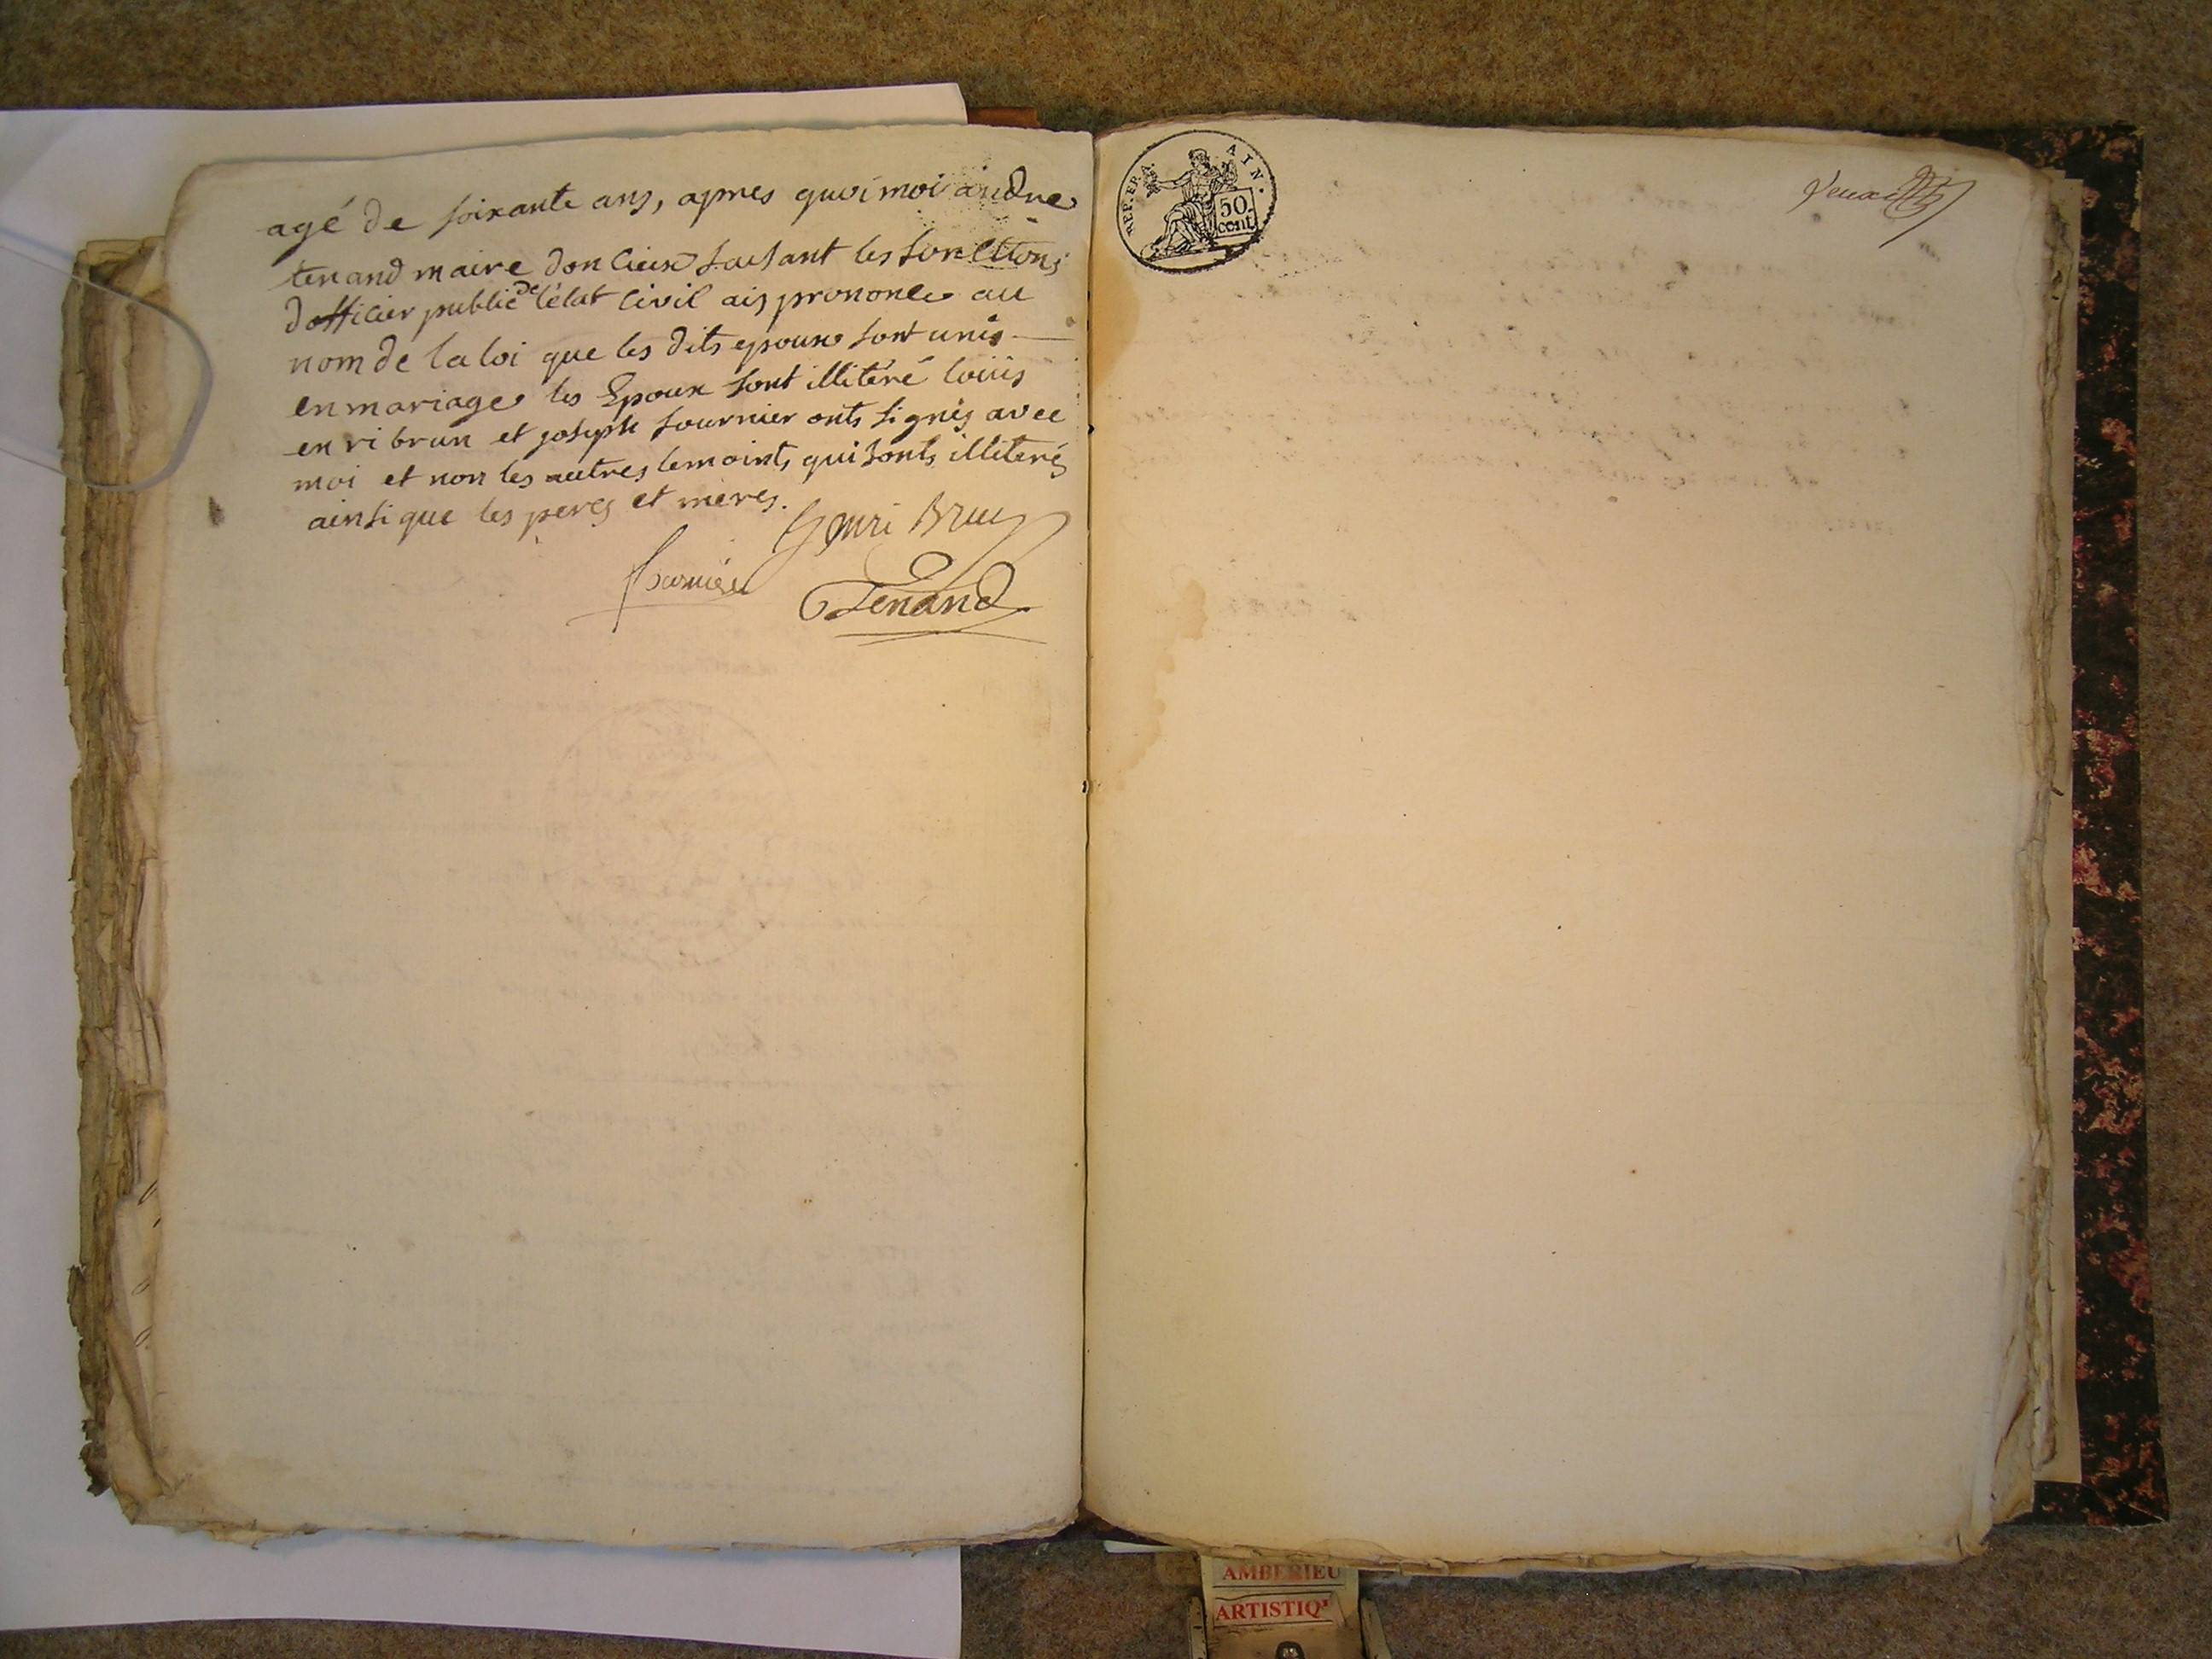 agé de soixante ans, apres quoi moi andre
tenand maire doncieux faisant les fonctions
dofficier public de l'état civil ais prononce au
nom de la loi que les dits epoux sont unis
en mariage les Epoux sont illitéré loüis
enri brun et joseph fournier onts signés avec
moi et non les autres temoints qui sonts illiterés
ainsi que les peres et meres.
henri Brun
fournier
Tenand
REP. FRA.
AIN.
50.
cent.
AMBERIEU
ARTISTIQ